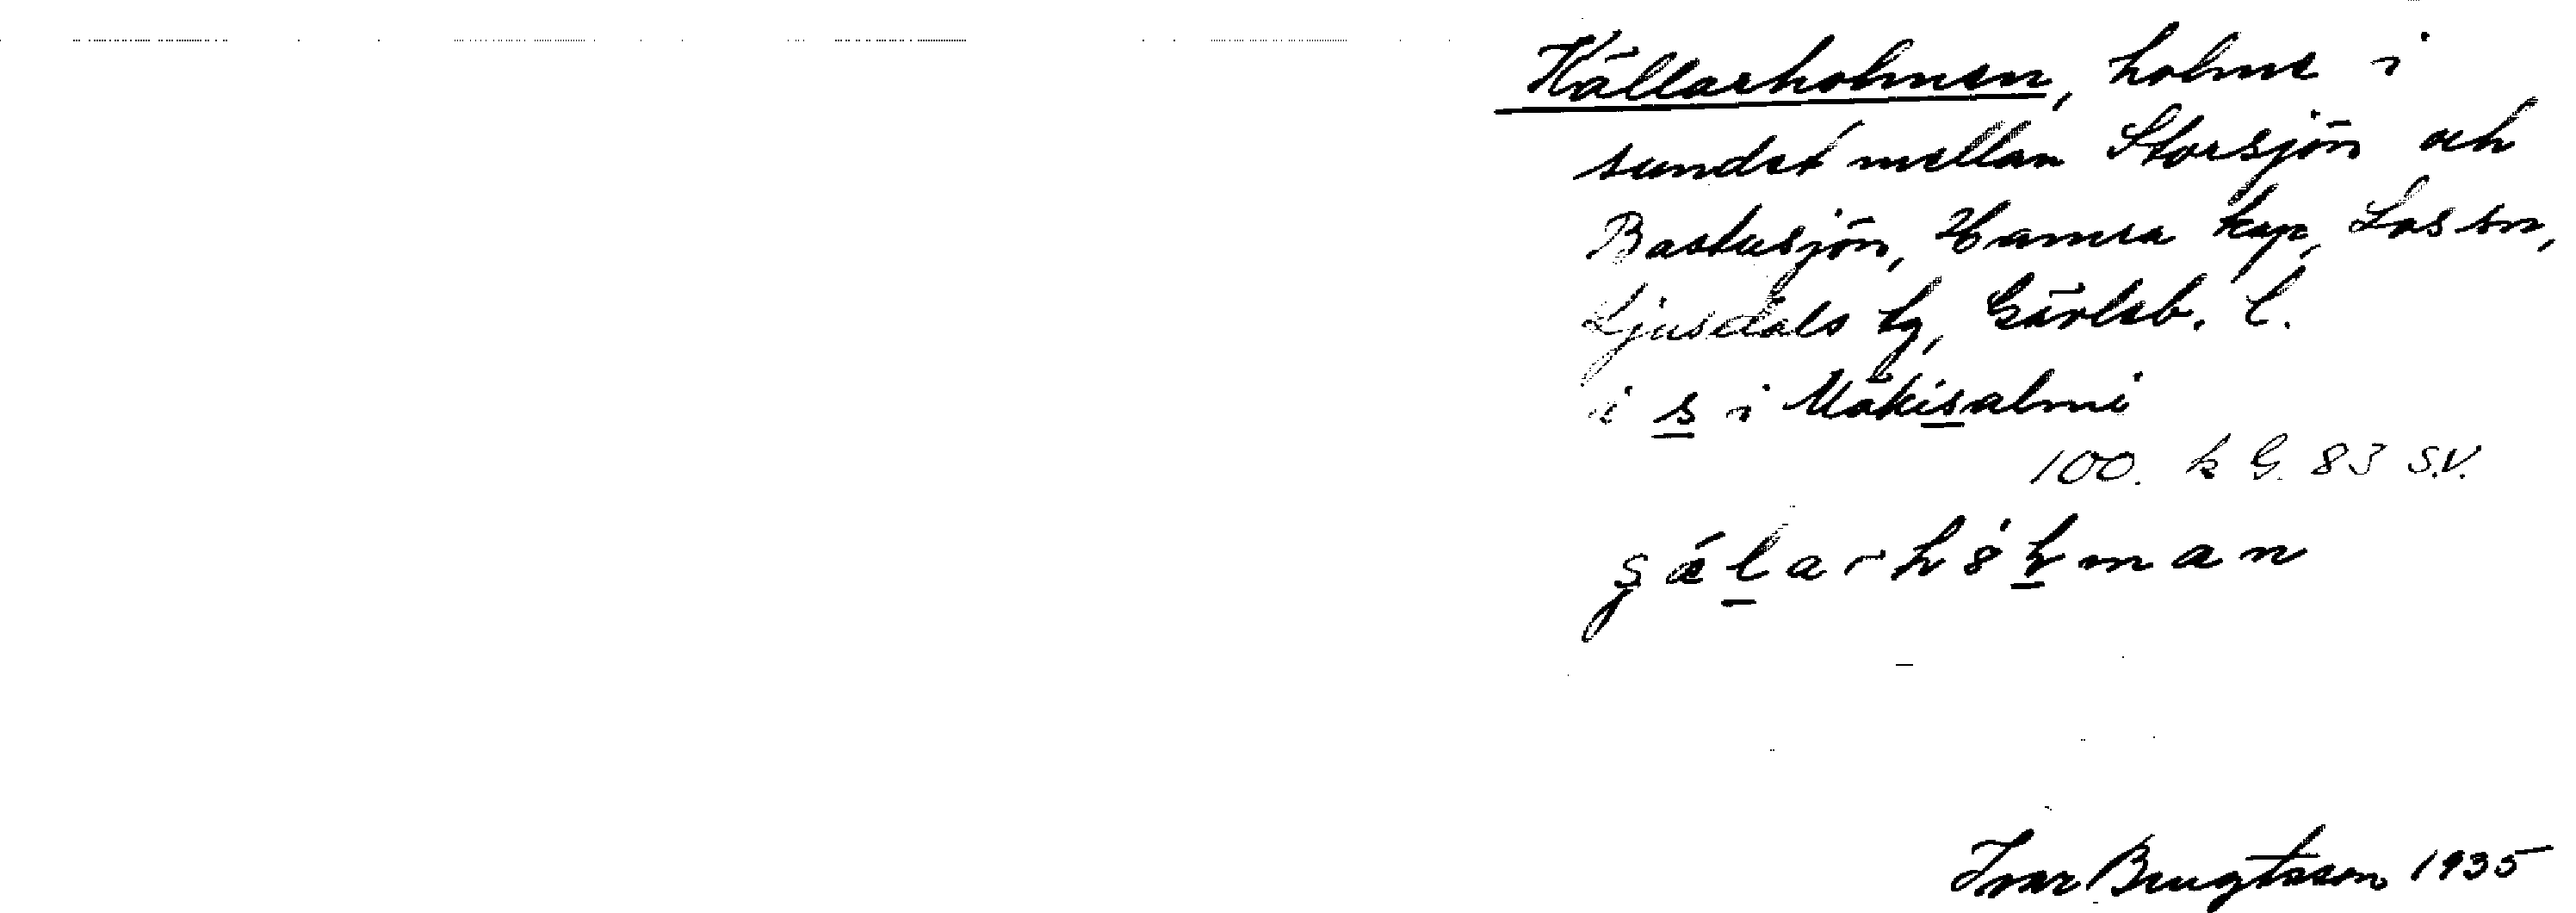 Källarholmen, holme i
sundet mellan Storsjön och
Bastusjön, Hamra kap, Los sn,
Ljusdals tg, Gävleb. l.
i s i Mäkisalmi
100. k G. 83 S.V.
Ivar Bengtsson 1935